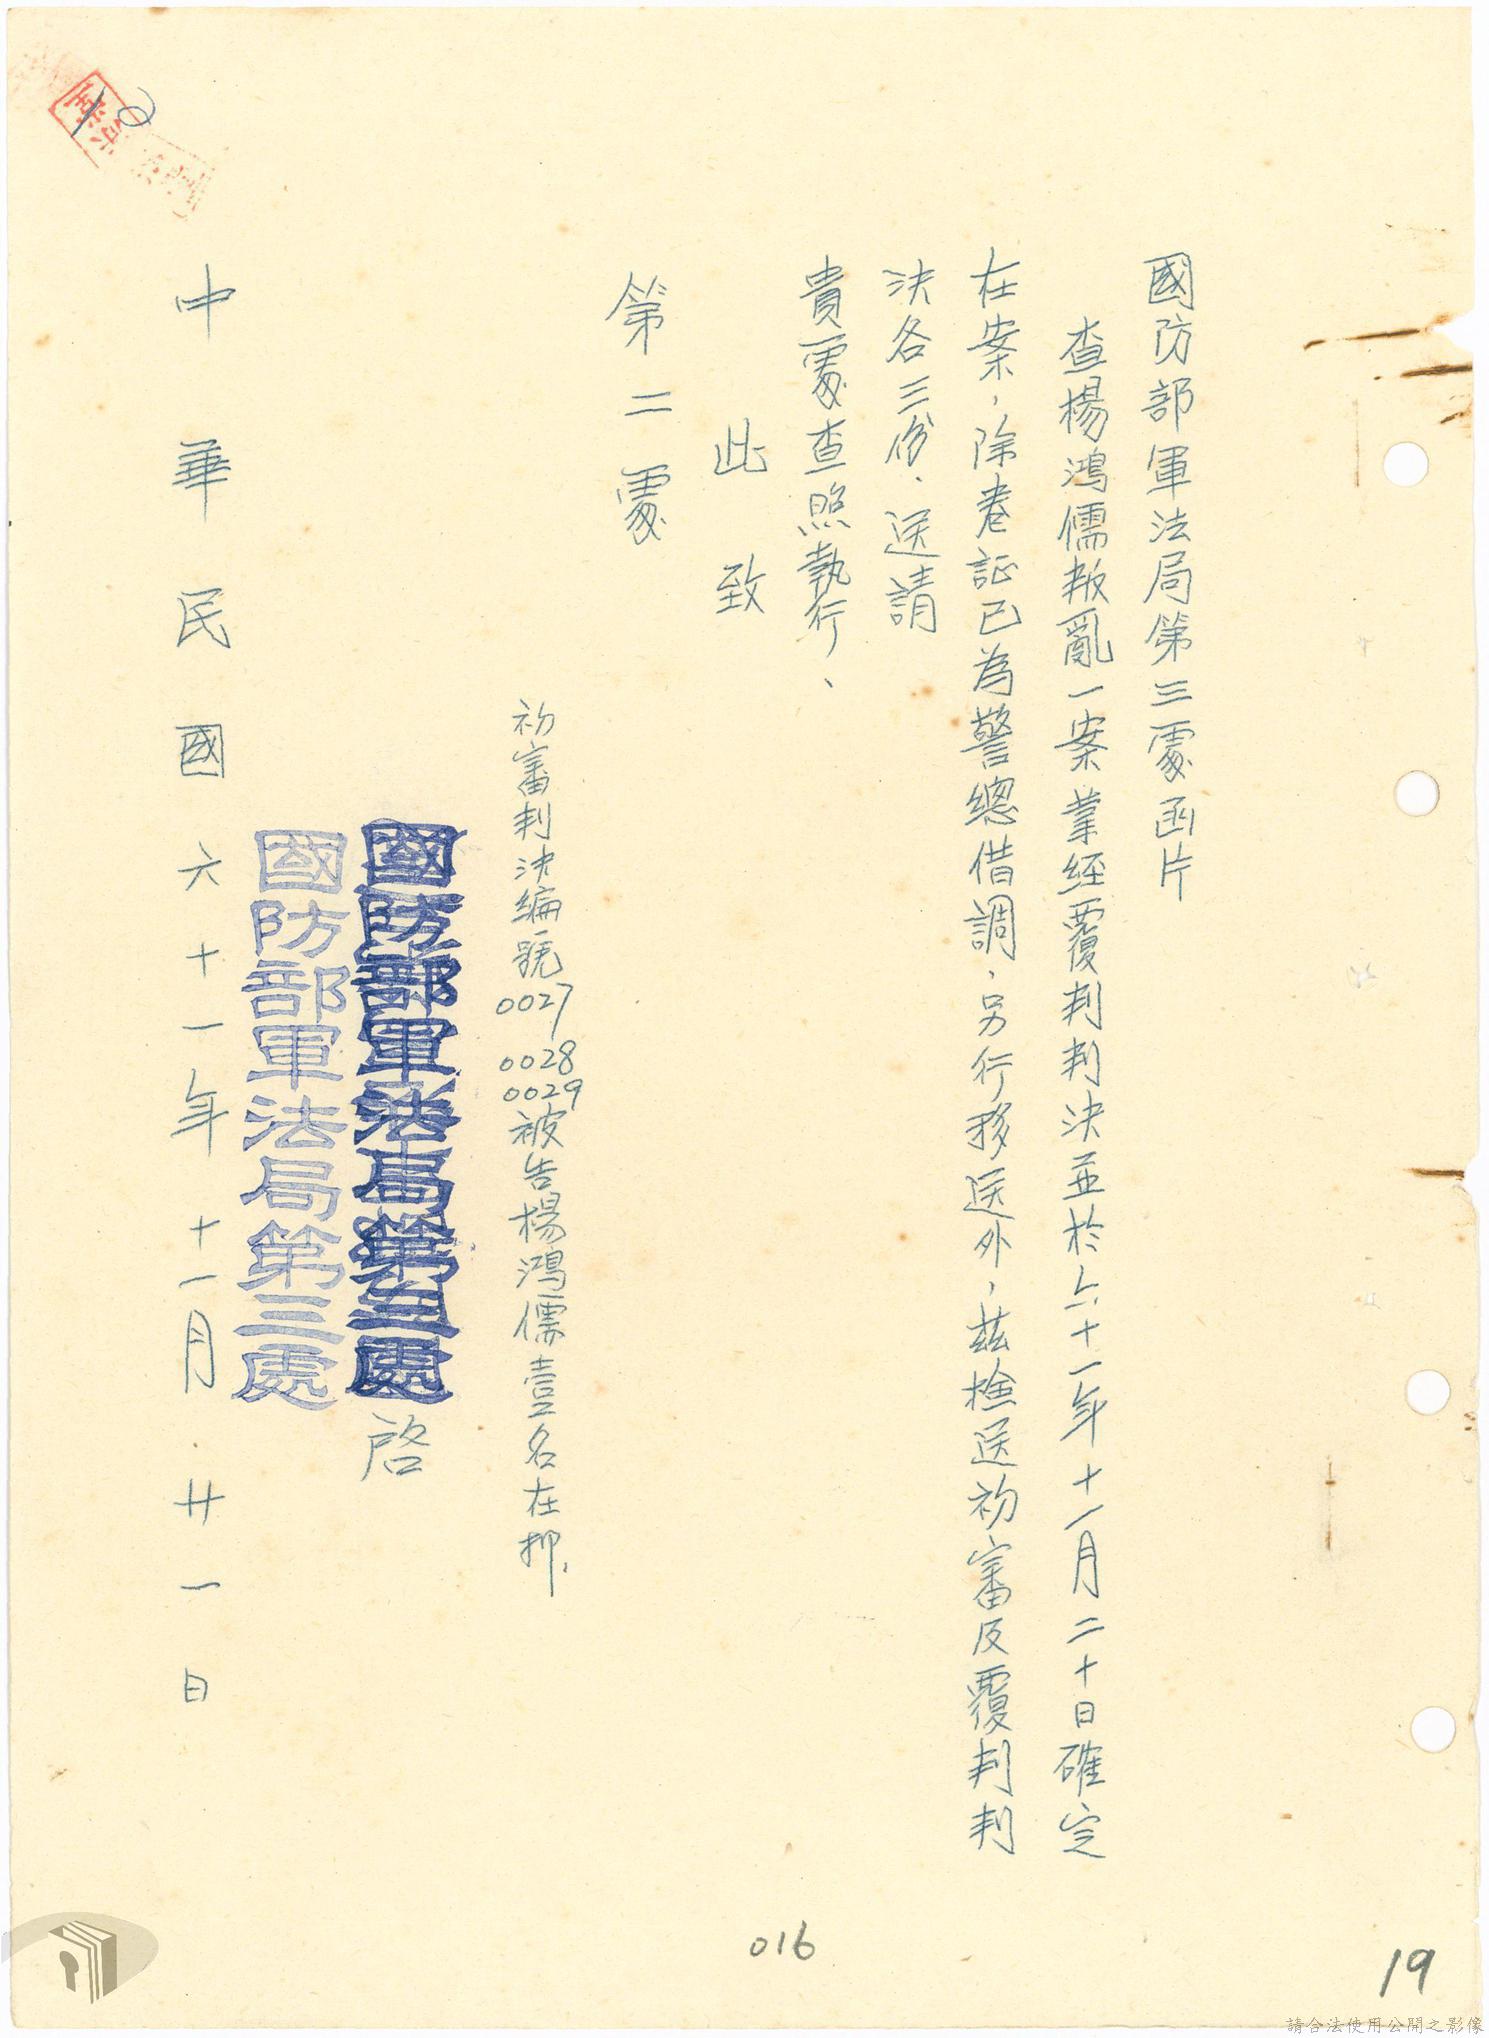 國防部軍法局第三處函片
查楊鴻儒叛亂一案業經覆判判決並於六十一年十一月二十日確定
在案，除卷証已為警總借調，另行移送外，茲檢送初審及覆判判
決各三份，送請
貴處查照執行、
此致
第二處
初審判決編號0027 0028 0029被告楊鴻儒壹名在押，
國防部軍法局第三處啓
國防部軍法局第三處
中華民國六十一年十一月廿一日
016
19
請合法使用公開之影像